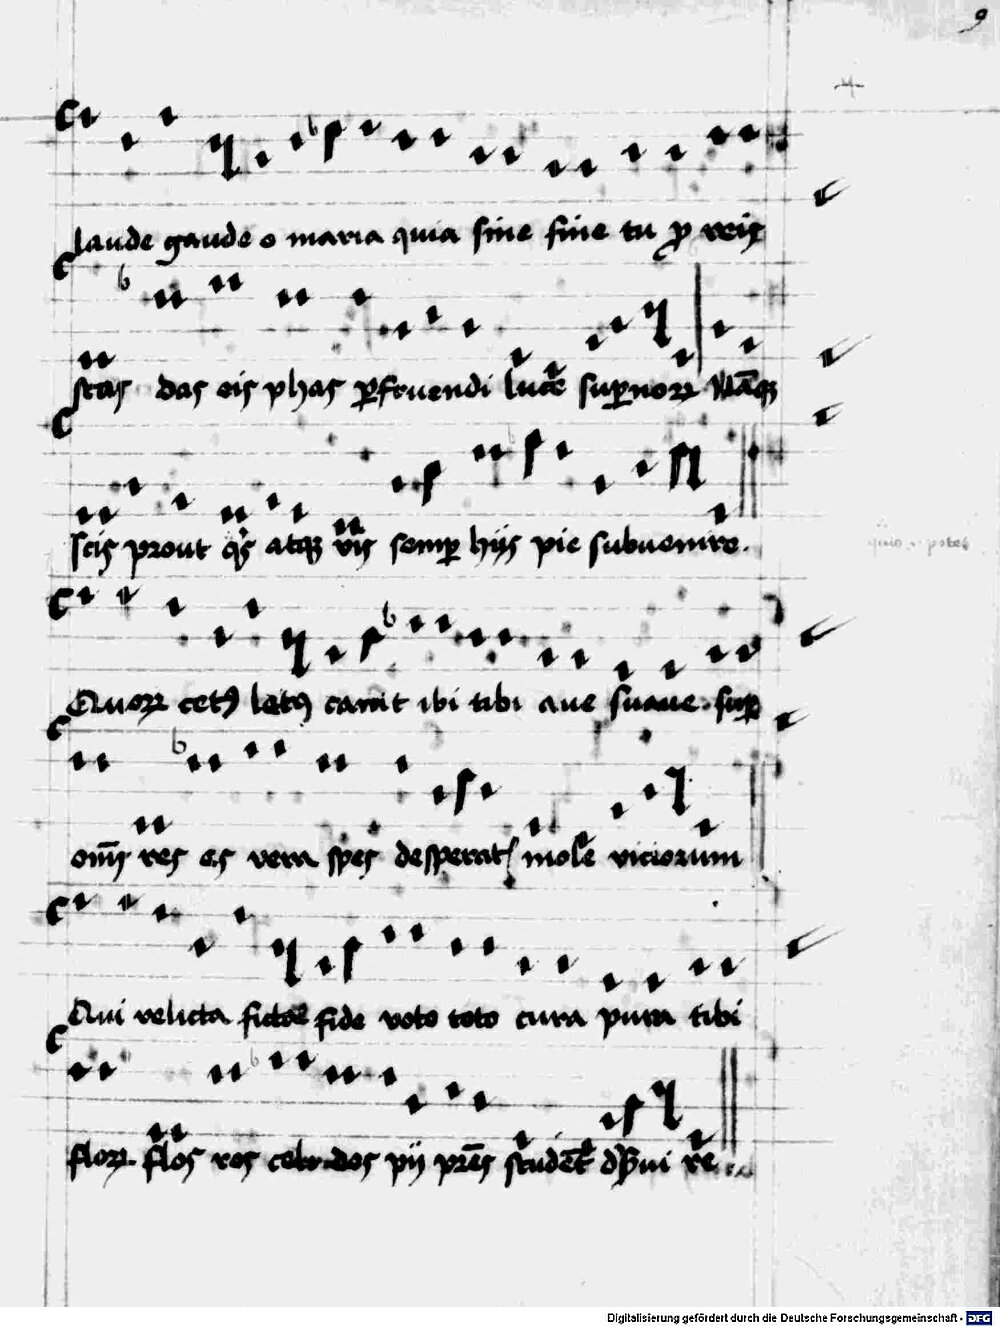 9
laude gaude o maria quia sine fine tu ꝓ reis
stas das eis phas ꝑfruendi luce suꝑnoꝝ
scis prout atqꝫ semꝑ hijs pie subuenire.
Quoꝝ cetꝰ letꝰ canit ibi tibi aue suaue suꝑ
om̄s res es vera spes desperat mole viciorum
Qui relicta ficta fide voto toto cura pura tibi
floꝝ flos ros pij pr̄es
Digitalisierung gefördert durch die Deutsche Forschungsgemeinschaft - DFG